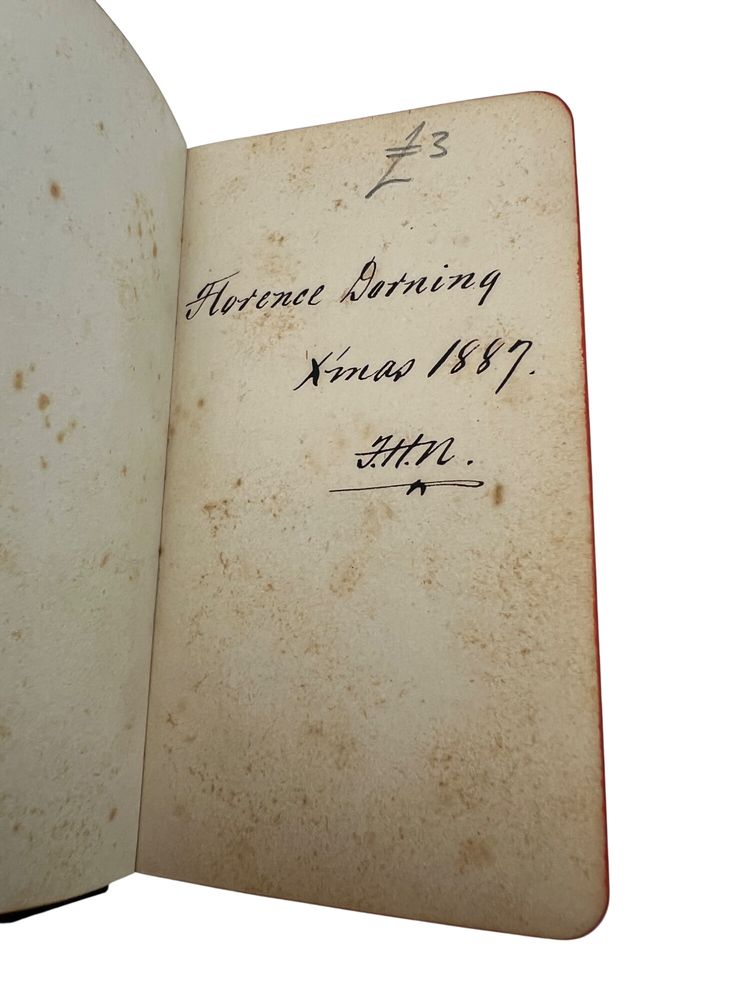 £3
Florence Dorning
X'mas 1887.
F.H.N.